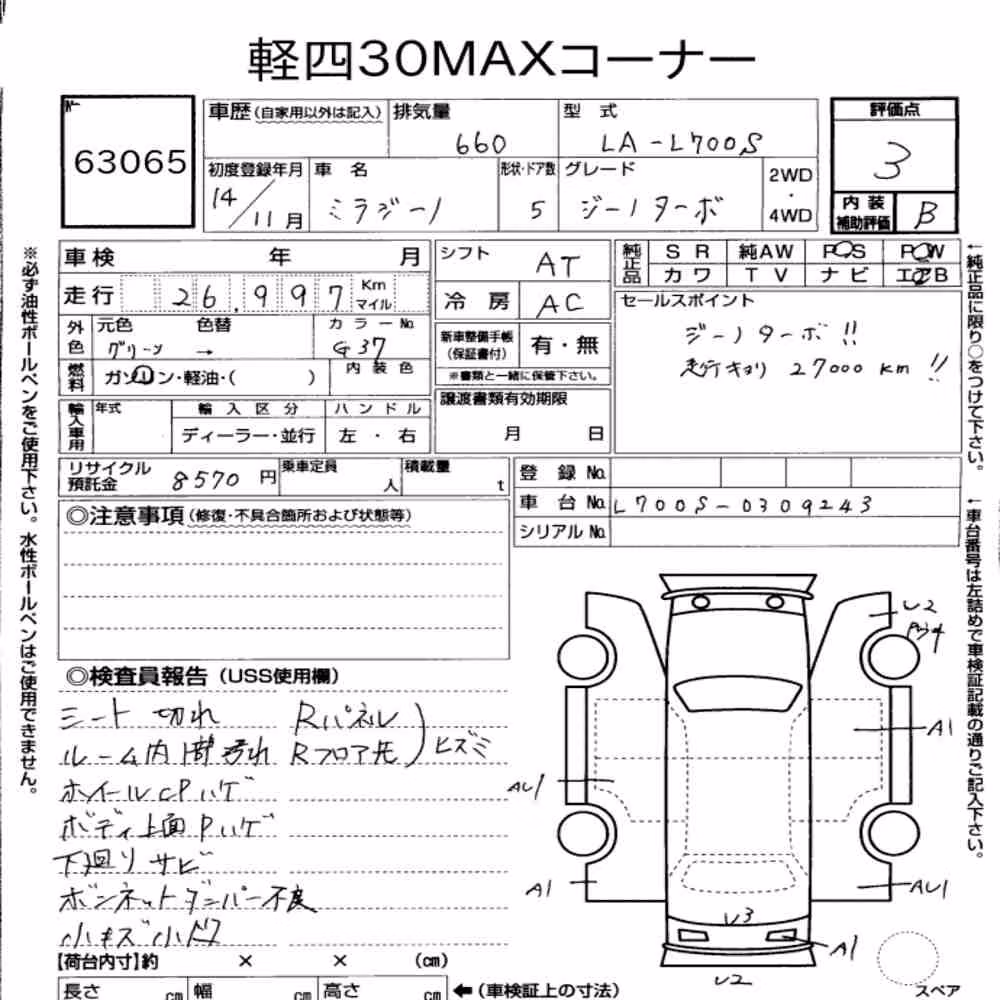 軽四30MAXコーナー
63065
車歴(自家用以外は記入)
排気量
660
型 式
LA-L700S
初度登録年月
14/11月
車 名
ミラジーノ
形状・ドア数
5
グレード
ジーノターボ
2WD
・
4WD
評価点
3
内 装
補助評価
B
車検 年 月
走行 26,997 Km
マイル
外色
元色 色替
グリーン →
カラーNo.
G37
燃料
ガソリン・軽油・( )
内 装 色
輸入車用
年式
輸 入 区 分
ディーラー・並行
ハ ン ド ル
左 ・ 右
シフト AT
冷 房 AC
新車整備手帳
(保証書付)
有・無
※書類と一緒に保管下さい。
譲渡書類有効期限
月 日
純正品
S R 純AW P・S P・W
カ ワ T V ナ ビ エアB
セールスポイント
ジーノターボ!!
走行キョリ 27000km!!
リサイクル
預託金
8570 円
乗車定員
人
積載量
t
登 録 No.
車 台 No. L700S-0309243
シリアル No.
◎注意事項(修復・不具合箇所および状態等)
◎検査員報告(USS使用欄)
シート切れ Rパネル
ルーム内 汚れ Rフロア先 ) ヒズミ
ホイールCPハゲ
ボディ上面Pハゲ
下廻りサビ
ボンネットダンパー不良
小キズ小凹
【荷台内寸】約 × × (cm)
長さ cm 幅 cm 高さ cm
←(車検証上の寸法)
U2
A1
AU1
A1
AU1
U3
A1
U2
スペア
※必ず油性ボールペンをご使用下さい。水性ボールペンはご使用できません。
←純正品に限り○をつけて下さい。
←車台番号は左詰めで車検証記載の通りご記入下さい。